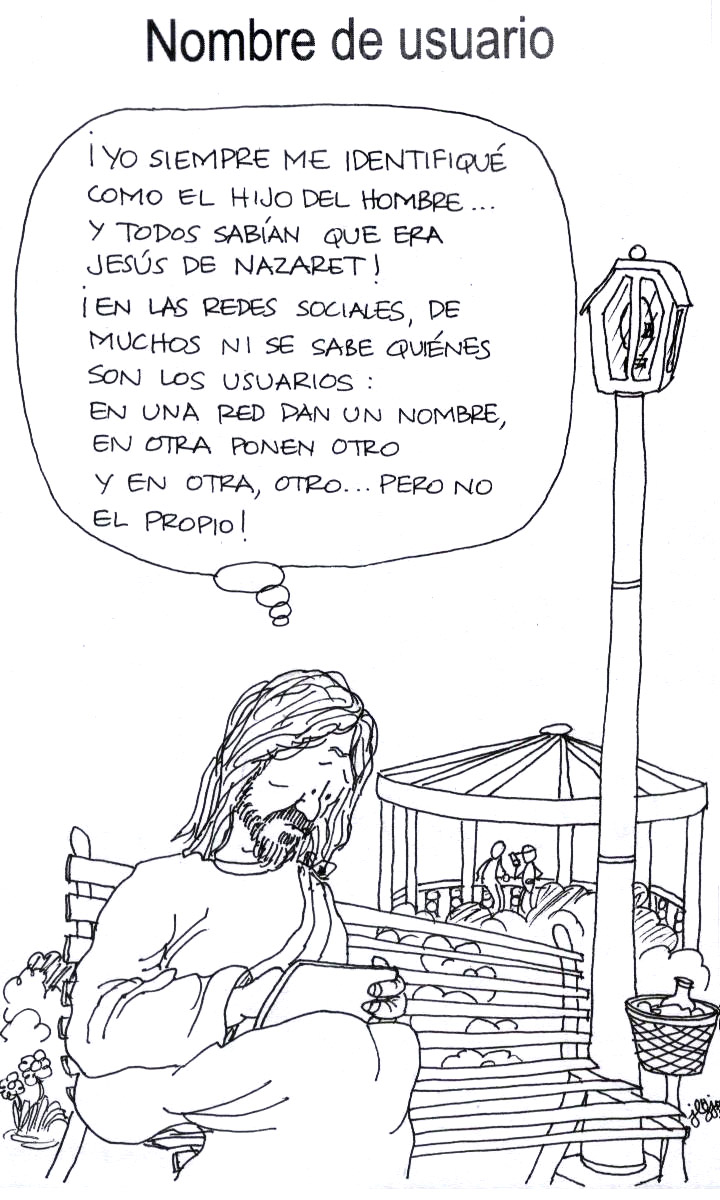 Nombre de usuario
¡YO SIEMPRE ME IDENTIFIQUÉ
COMO EL HIJO DEL HOMBRE...
Y TODOS SABÍAN QUE ERA
JESÚS DE NAZARET!
¡EN LAS REDES SOCIALES, DE
MUCHOS NI SE SABE QUIÉNES
SON LOS USUARIOS:
EN UNA RED DAN UN NOMBRE,
EN OTRA PONEN OTRO
Y EN OTRA, OTRO... PERO NO
EL PROPIO!